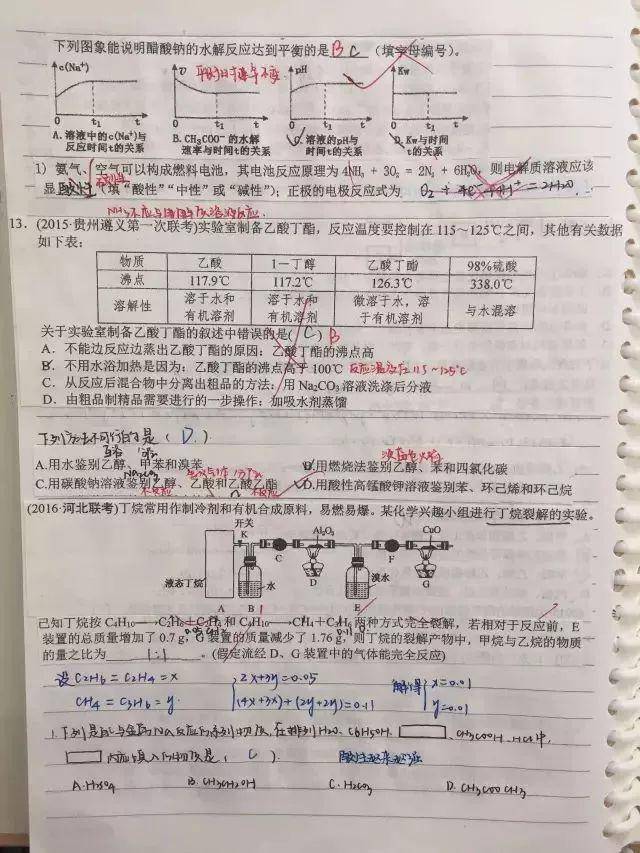 下列图象能说明醋酸钠的水解反应达到平衡的是 B C (填字母编号)。
c(Na⁺) υ 平衡时υ不变 pH Kw
0 t₁ t 0 t₁ t 0 t₁ t 0 t₁ t
A.溶液中的c(Na⁺)与反应时间t的关系
B.CH₃COO⁻的水解速率与时间t的关系
C.溶液的pH与时间t的关系
D.Kw与时间t的关系
1) 氨气、空气可以构成燃料电池,其电池反应原理为4NH₃ + 3O₂ = 2N₂ + 6H₂O。则电解质溶液应该
显 酸性 (填“酸性”“中性”或“碱性”);正极的电极反应式为 O₂ + 4e⁻ + 4H⁺ = 2H₂O.
13. (2015·贵州遵义第一次联考)实验室制备乙酸丁酯,反应温度要控制在115~125℃之间,其他有关数据
如下表:
物质 乙酸 1-丁醇 乙酸丁酯 98%硫酸
沸点 117.9℃ 117.2℃ 126.3℃ 338.0℃
溶解性 溶于水和有机溶剂 溶于水和有机溶剂 微溶于水,溶于有机溶剂 与水混溶
关于实验室制备乙酸丁酯的叙述中错误的是( C ) B
A.不能边反应边蒸出乙酸丁酯的原因:乙酸丁酯的沸点高
B.不用水浴加热是因为:乙酸丁酯的沸点高于100℃ 反应温度在115~125℃
C.从反应后混合物中分离出粗品的方法:用Na₂CO₃溶液洗涤后分液
D.由粗品制精品需要进行的一步操作:加吸水剂蒸馏
下列方法不可行的是( D )
互溶
A.用水鉴别乙醇、甲苯和溴苯
B.用燃烧法鉴别乙醇、苯和四氯化碳
Na₂CO₃
C.用碳酸钠溶液鉴别乙醇、乙酸和乙酸乙酯
D.用酸性高锰酸钾溶液鉴别苯、环己烯和环己烷
不反应
(2016·河北联考)丁烷常用作制冷剂和有机合成原料,易燃易爆。某化学兴趣小组进行丁烷裂解的实验。
开关 K Al₂O₃ CuO
C D F
液态丁烷 水 溴水 G
A B E
已知丁烷按C₄H₁₀⟶C₂H₆+C₂H₄和C₄H₁₀⟶CH₄+C₃H₆两种方式完全裂解,若相对于反应前,E
装置的总质量增加了0.7 g,G装置的质量减少了1.76 g,则丁烷的裂解产物中,甲烷与乙烷的物质
的量之比为 1:1 。(假定流经D、G装置中的气体能完全反应)
设C₂H₆=C₂H₄=x
CH₄=C₃H₆=y
2x+3y=0.05
(4x+3x)+(2y+2y)=0.11
解得 x=0.01
y=0.01
C₆H₅OH、 、CH₃COOH、HCl中,
内应填入的物质是( C )
A.H₂SO₄ B.CH₃CH₂OH C.H₂CO₃ D.CH₃COOCH₃